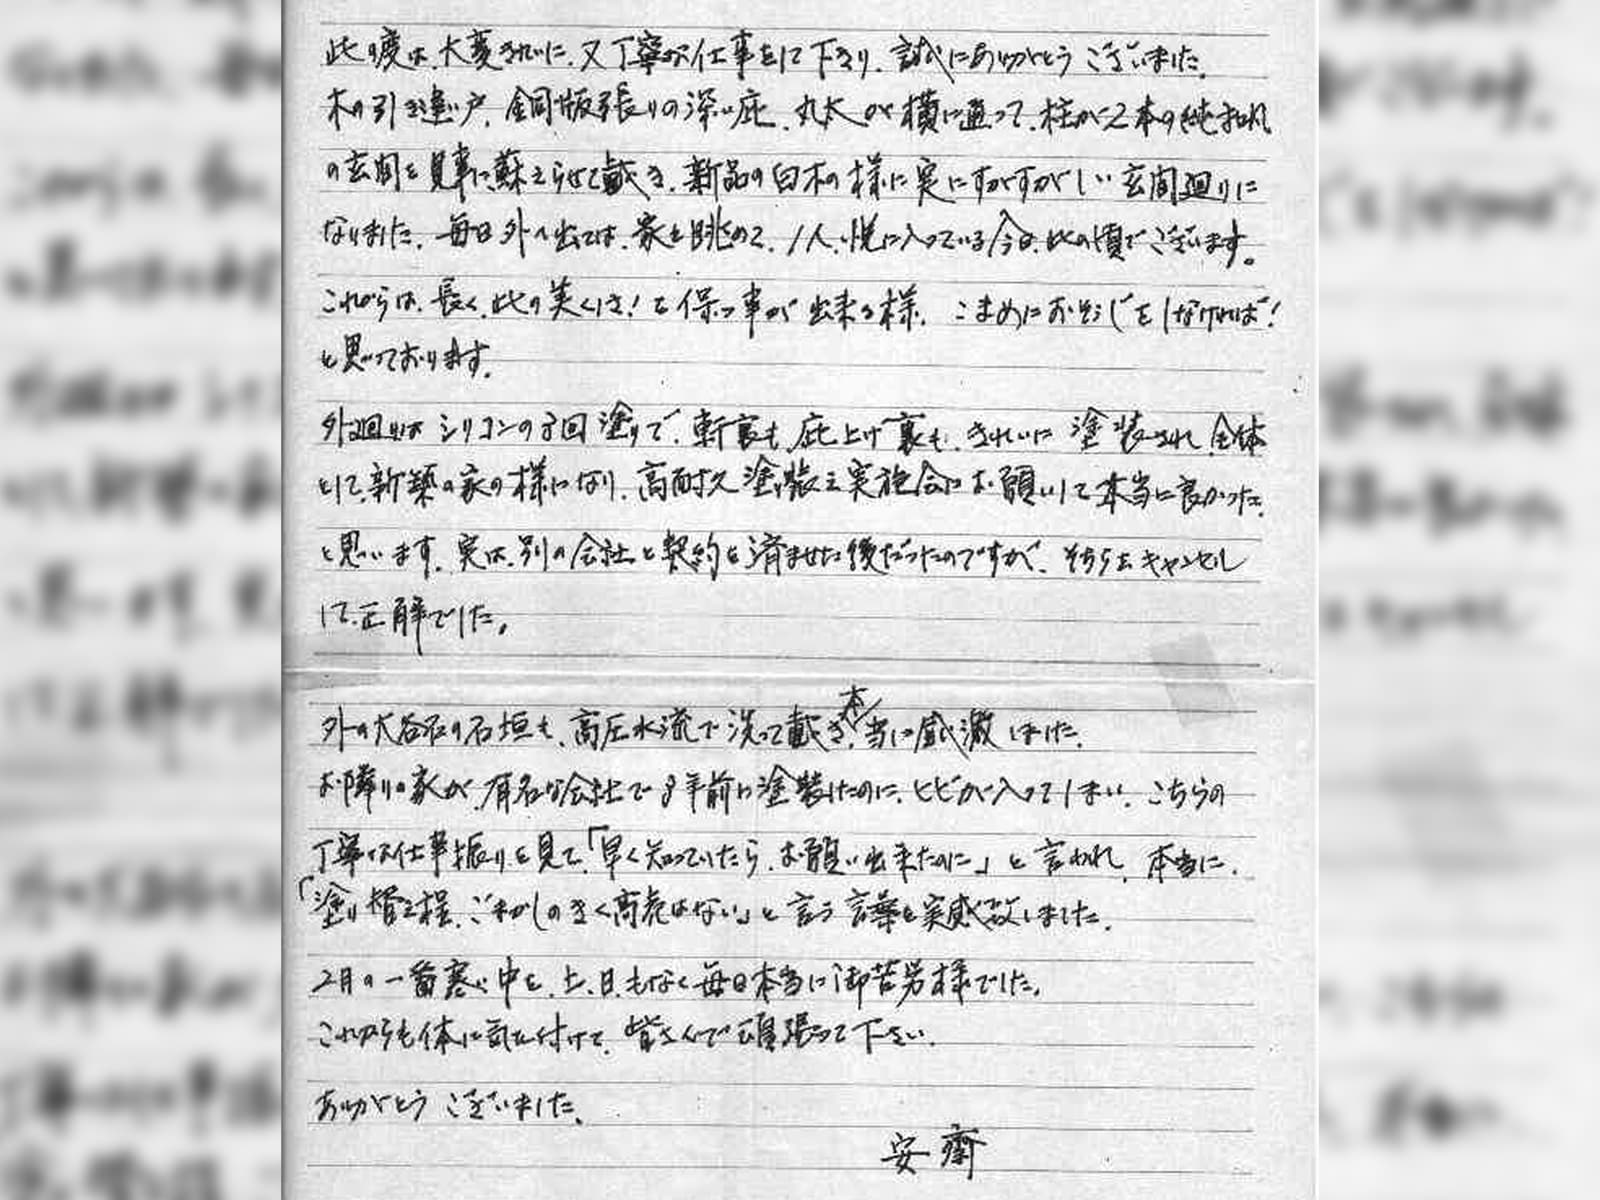 此の度は、大変きれいに、又丁寧な仕事をして下さり、誠にありがとうございました。
木の引き違い戸、銅版張りの深い庇、丸太が横に通って、柱が2本の純和風
の玄関を見事に蘇えらせて戴き、新品の白木の様に実にすがすがしい玄関廻りに
なりました。毎日外へ出ては、家を眺めて、1人、悦に入っている今日、此の頃でございます。
これからは、長く、此の美くしさ!を保つ事が出来る様、こまめにおそうじをしなければ!
と思っております。
外廻りはシリコンの3回塗りで、軒裏も、庇上げ裏も、きれいに塗装され、全体
として、新築の家の様になり、高耐久塗装実施会にお願いして本当に良かった。
と思います。実は、別の会社と契約を済ませた後だったのですが、そちらをキャンセル
して、正解でした。
外の大谷石の石垣も、高圧水流で洗って戴き、本当に感激しました。
お隣りの家が、有名な会社で8年前に塗装したのに、ヒビが入ってしまい、こちらの
丁寧な仕事振りを見て、「早く知っていたら、お願い出来たのに」と言われ、本当に、
「塗り替え程、ごまかしのきく商売はない」と言う言葉を実感致しました。
2月の一番寒い中を、土、日、もなく毎日本当に御苦労様でした。
これからも体に気を付けて、皆さんで頑張って下さい。
ありがとうございました。
安齋